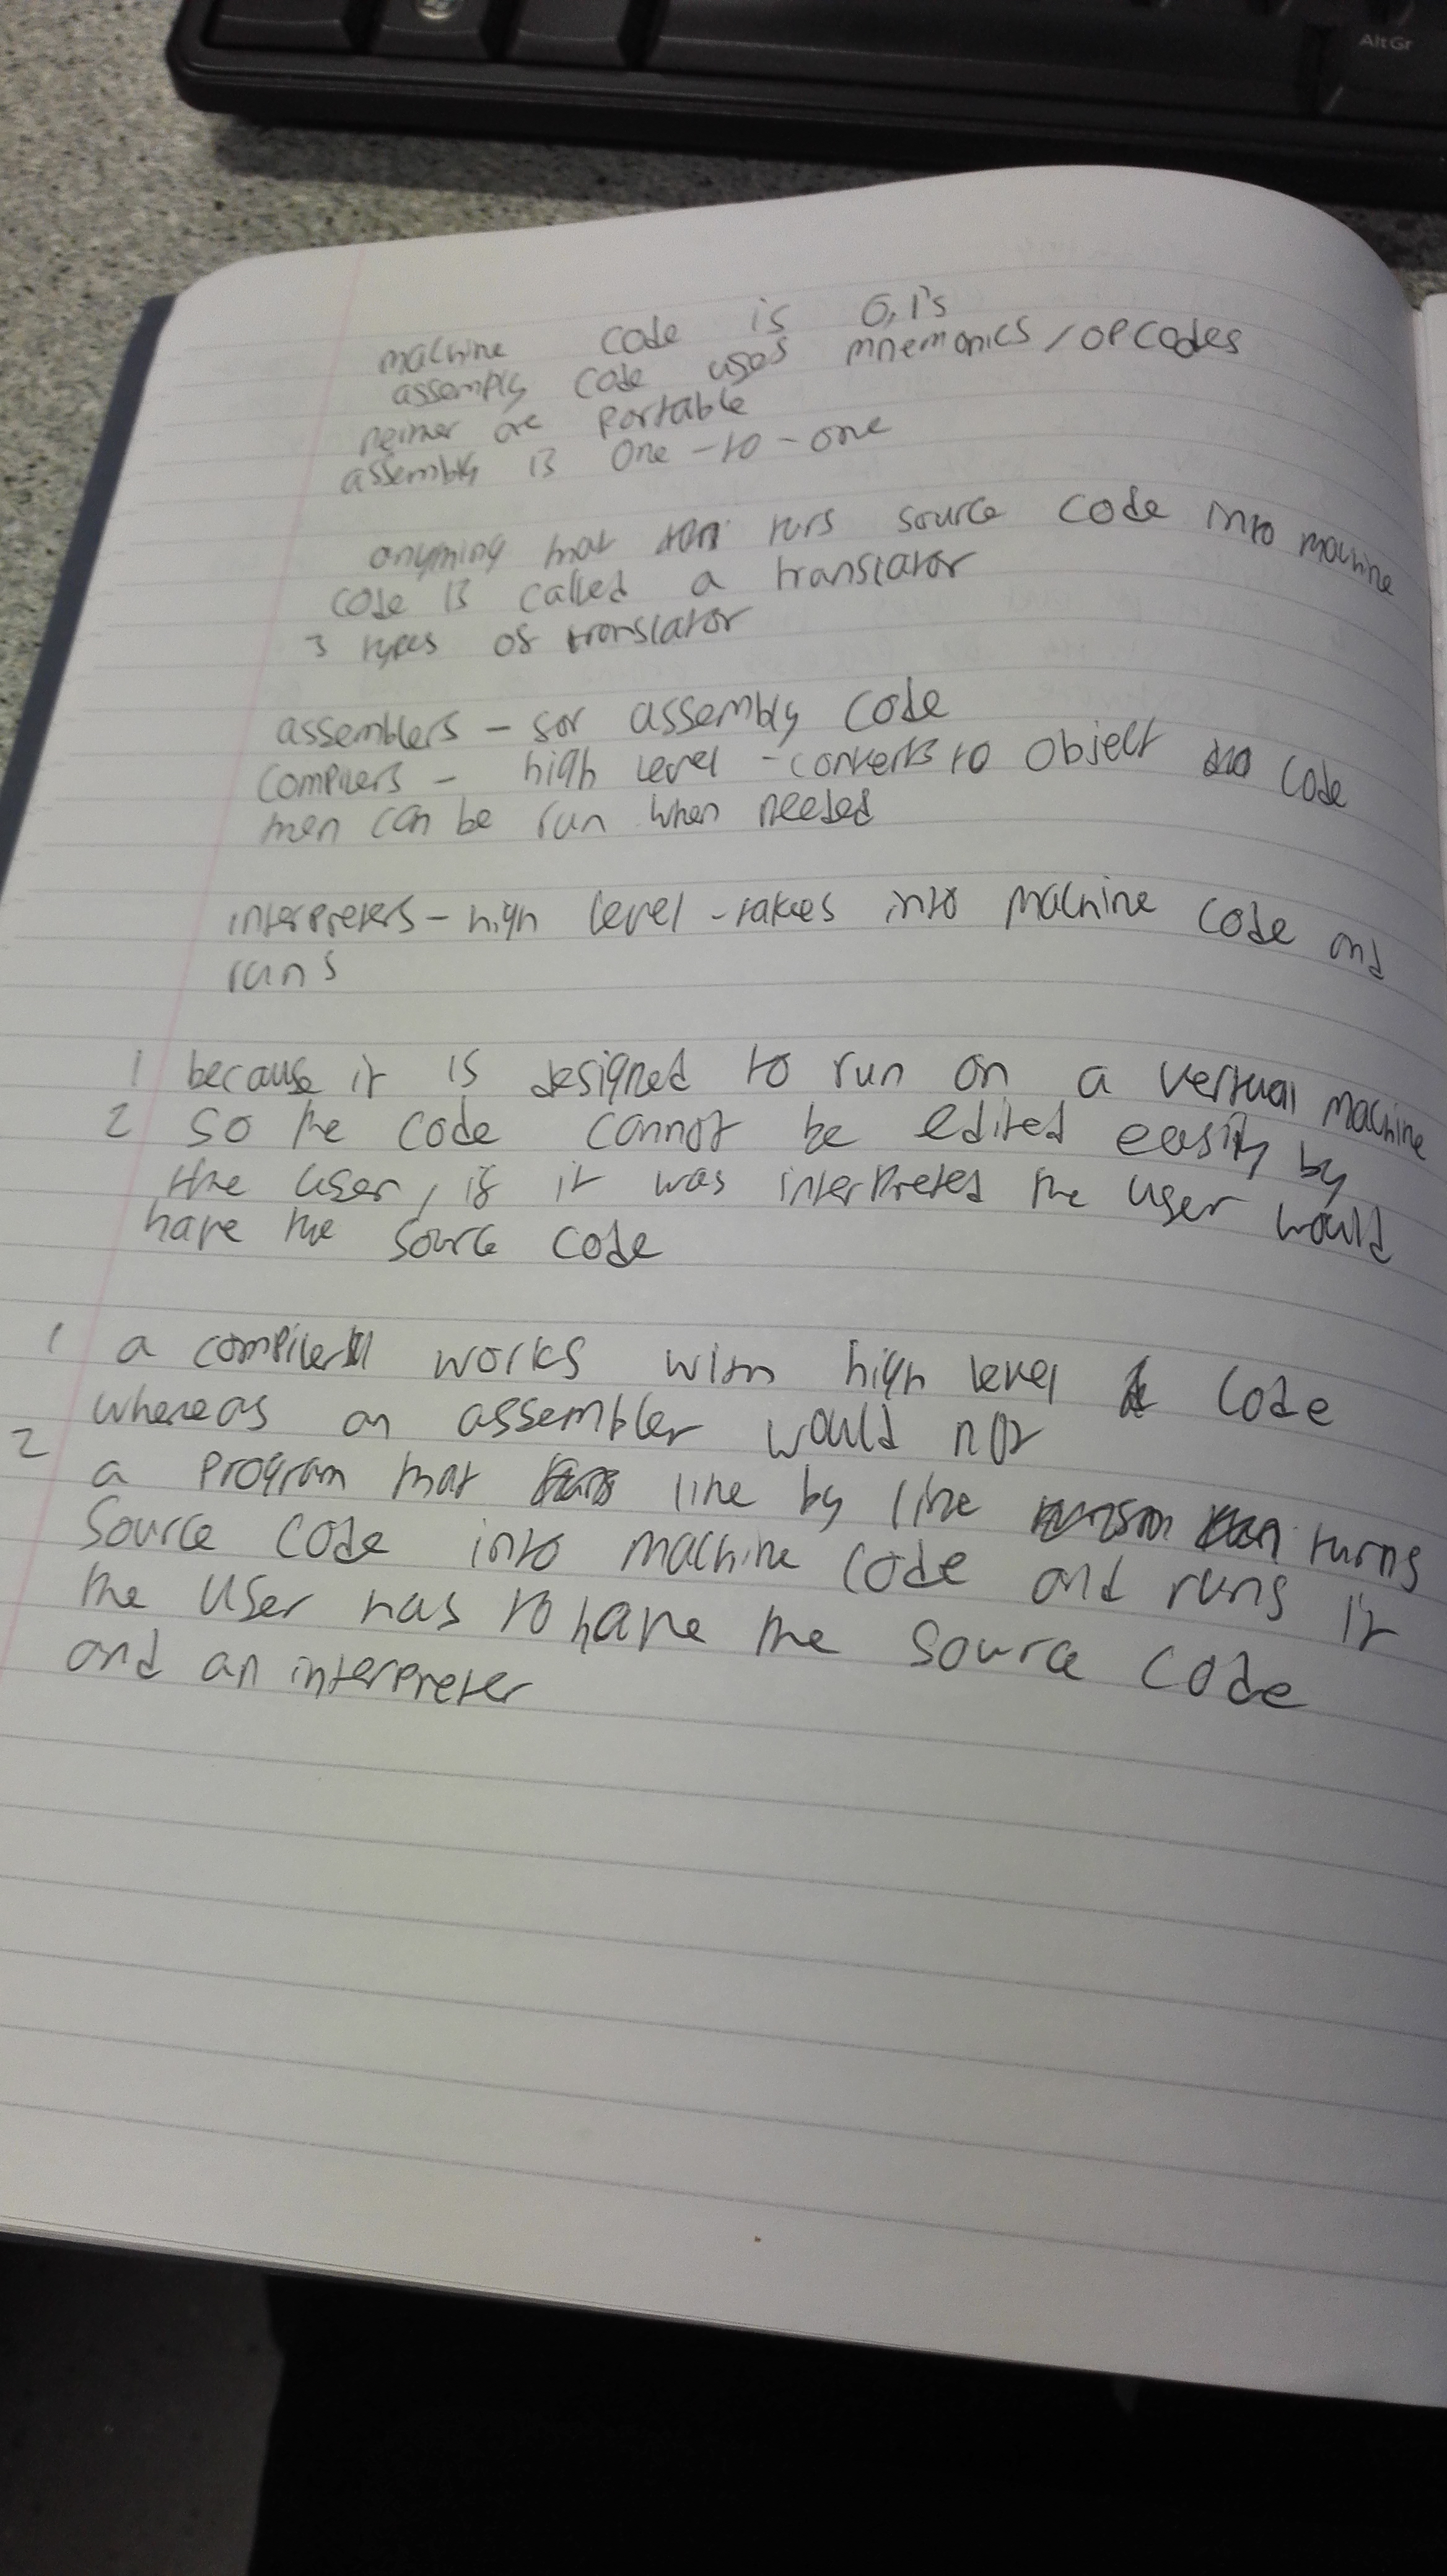 AltGr
machine code is 0,1's
assembly code uses mnemonics/opcodes
neither are portable
assembly is one-to-one
anything that turs source code into machine
code is called a translator
3 types of translator
assemblers - for assembly code
compilers - high level - converts to object code
then can be run when needed
interpreters - high level - takes into machine code and
runs
1 because it is designed to run on a vertual machine
2 so the code cannot be edited easily by
the user, if it was interpreted the user would
have the source code
1 a compiler works with high level code
whereas an assembler would not
2 a program that line by line turns
source code into machine code and runs it
the user has to have the source code
and an interpreter